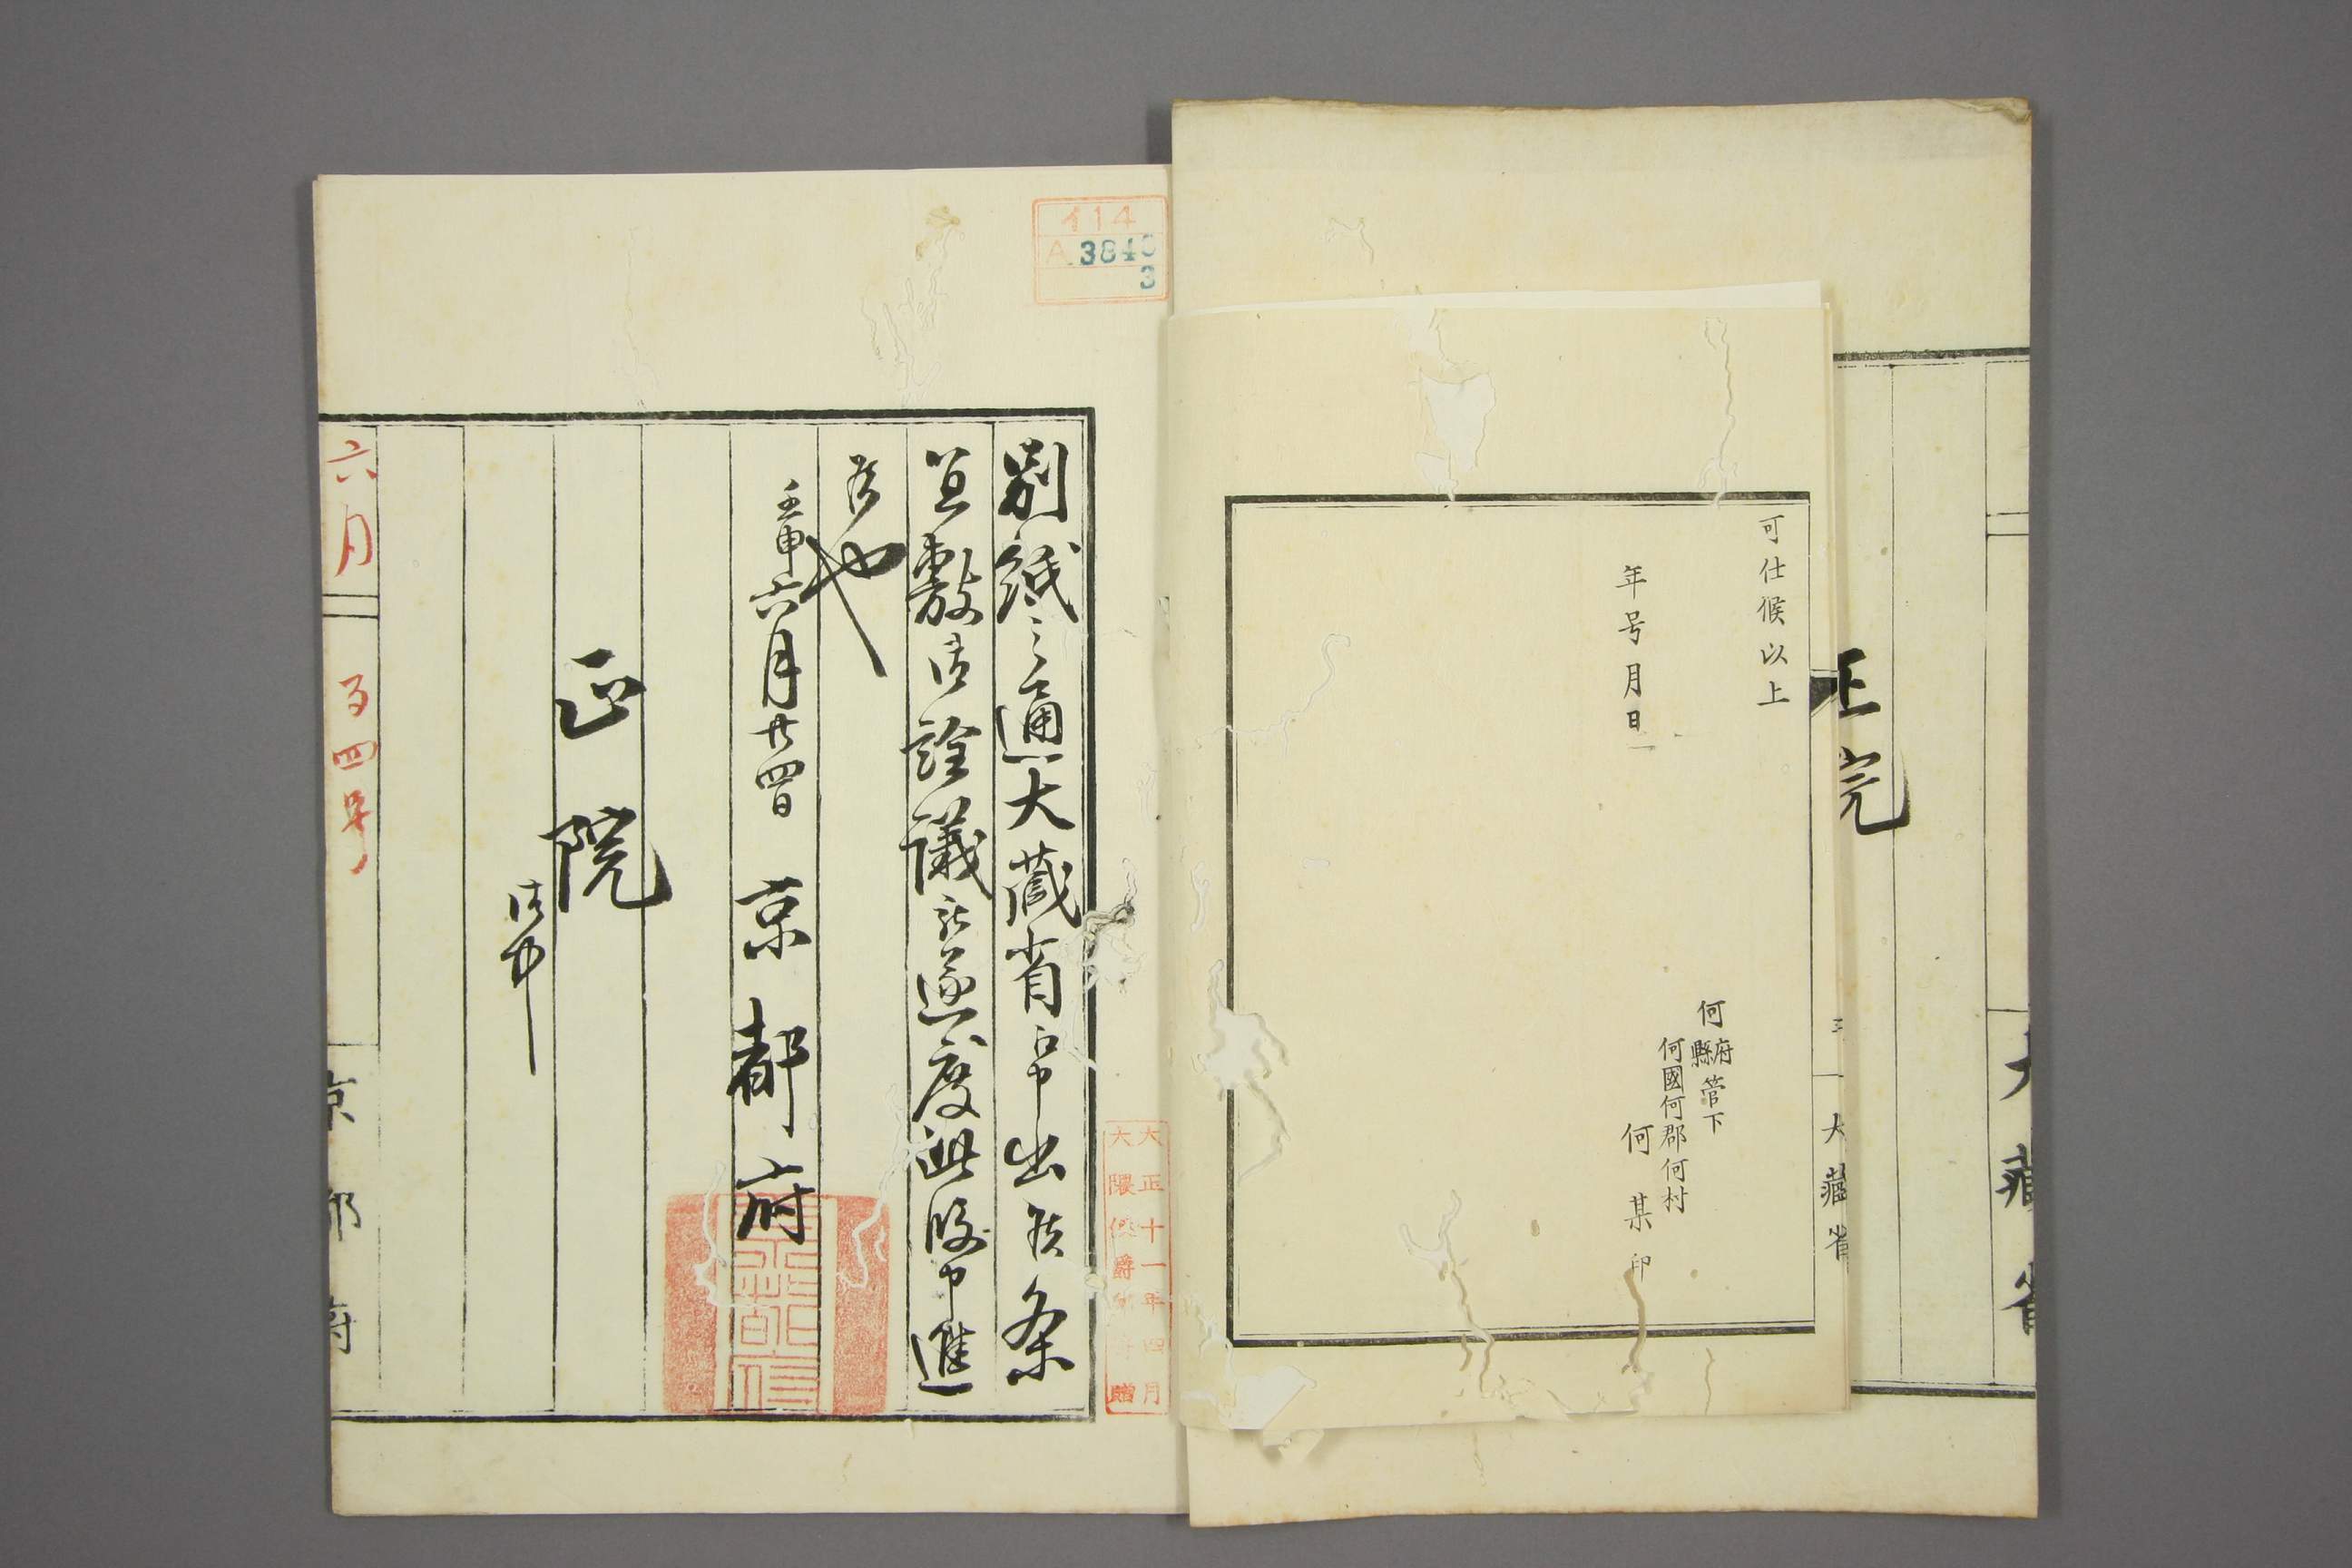 可仕候以上
年号月日
何府縣管下
何國何郡何村
何某印
正院
大藏省
三 大藏省
114
A 384
3
大正十一年四月
大隈侯爵家寄贈
別紙之通大蔵省申出候条
宜敷御詮議被遂度此段申進
候也
壬申六月廿四日 京都府
正院
御中
六月 百四号 京都府